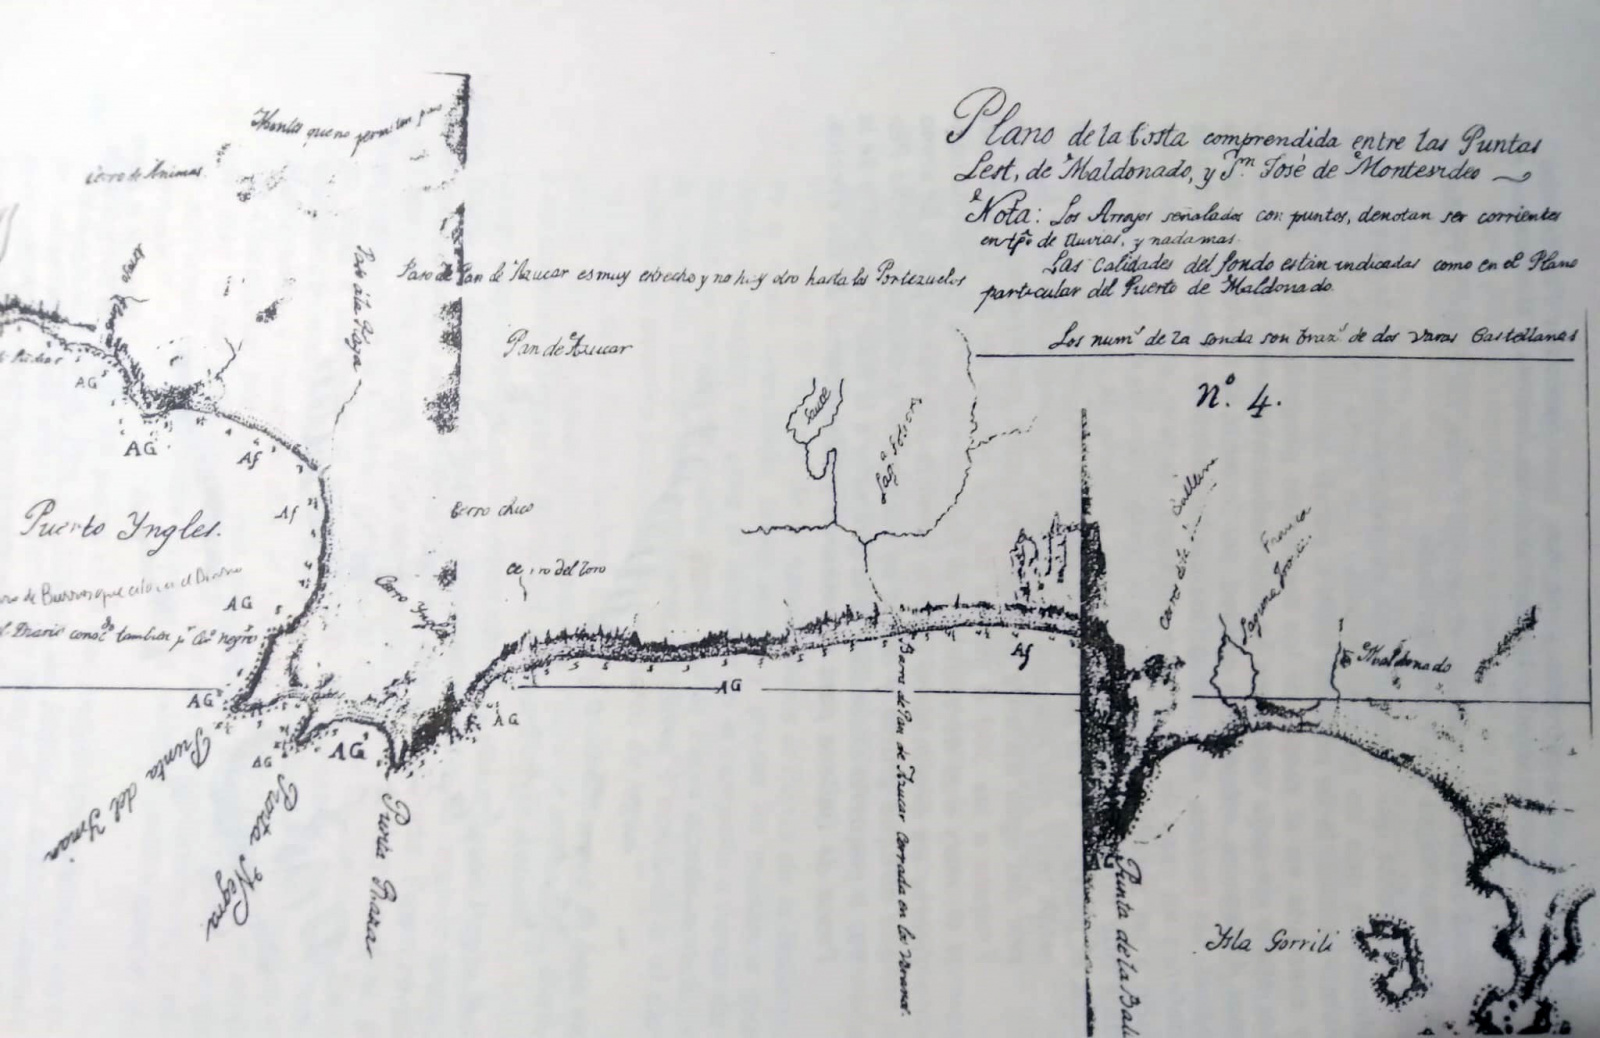 Plano de la Costa comprendida entre las Puntas
Lest, de Maldonado, y Sn. José de Montevideo
Nota: Los Arroyos señalados con puntos, denotan ser corrientes
en tpo. de lluvias, y nada mas.
Las Calidades del fondo están indicadas como en el Plano
particular del Puerto de Maldonado.
Los nums. de la sonda son brazs. de dos varas Castellanas
No. 4.
Monta que no permiten paso
Cerro de Animas
Paso de Pan de Azucar es muy estrecho y no hay otro hasta los Portezuelos
Pan de Azucar
AG
AG
Af
Af
Puerto Yngles.
Cerro chico
Cerro del Toro
Cerro Yngles
AG
el Diario
tambien pr. Co. negro
AG
AG
AG
AG
AG
Punta del Yman
Punta Negra
Punta Rasa
Sauce
Laga.
Af
Barra de Pan de Azucar Cerrada en los Veranos.
Cerro de la Ballena
Laguna
Maldonado
AG
Punta de la Ball
Isla Gorriti